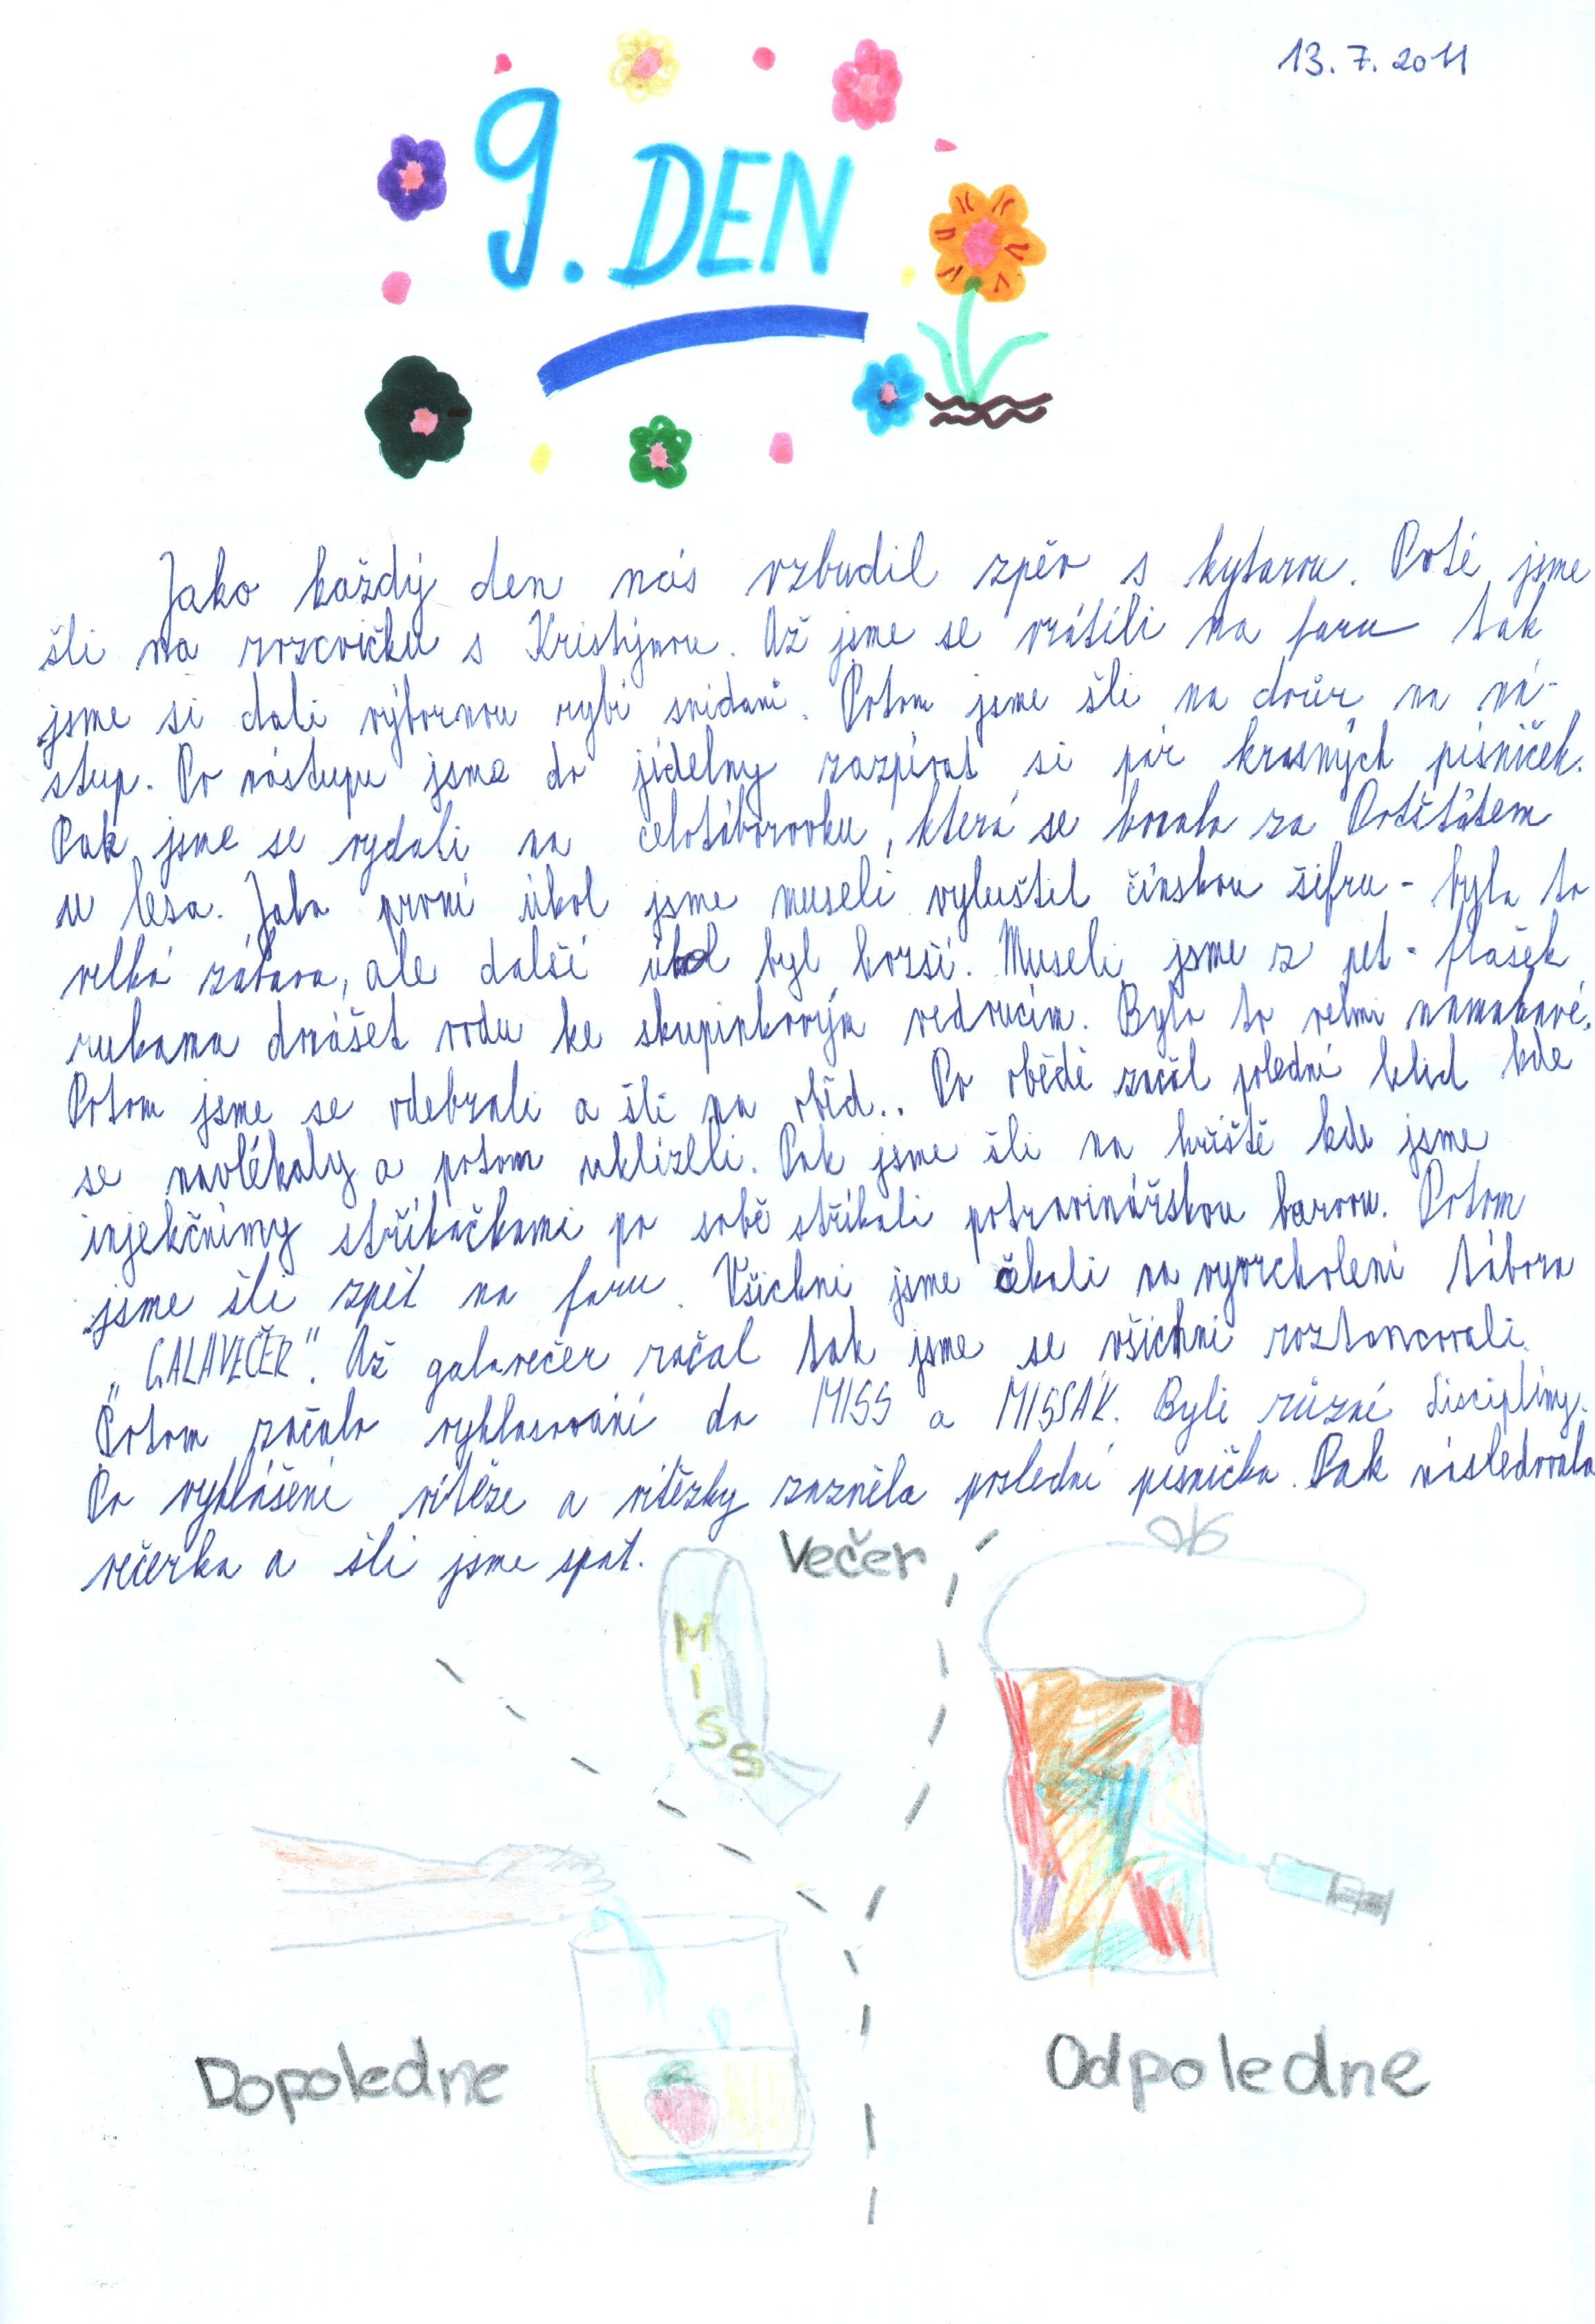 13. 7. 2011
9. DEN
Jako každý den nás vzbudil zpěv s kytarou. Poté jsme
šli na rozcvičku s Kristýnou. Až jsme se vrátili na faru tak
jsme si dali výbornou rybí snídani. Potom jsme šli na dvůr na ná-
stup. Po nástupu jsme do jídelny zazpívat si pár krasných písniček.
Pak jsme se vydali na celotáborovku, která se konala za Potštátem
u lesa. Jako první úkol jsme museli vyluštil čínskou šifru - byla to
velká zábava, ale další úkol byl horší. Museli jsme z pet - flašek
rukama donášet vodu ke skupinkovým vedoucím. Bylo to velmi namahavé.
Potom jsme se odebrali a šli na oběd.. Po obědě začal polední klid kde
se navlékaly a potom uklízeli. Pak jsme šli na hřiště kde jsme
injekčnímy stříkačkami po sobě stříkali potravinářskou barvou. Potom
jsme šli zpět na faru. Všichni jsme čekali na vyvrcholení tábora
„GALAVEČER". Až galavečer začal tak jsme se všichni roztancovali.
Potom začalo vyhlasování do MISS a MISSÁK. Byli různé disciplíny.
Po vyhlášení vítěze a vítězky zazněla poslední písnička. Pak následovala
večerka a šli jsme spat.
Večer
MISS
Dopoledne
Odpoledne